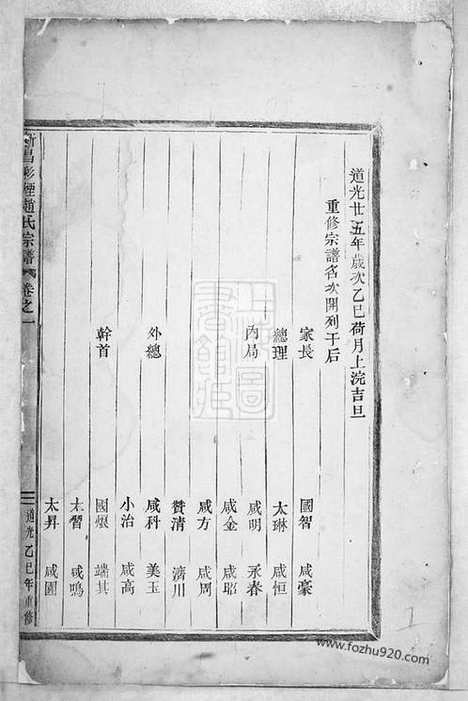 道光廿五年歲次乙巳荷月上浣吉旦
重修宗譜名次開列于后
家長 國智 咸豪
總理 太琳 咸恒
內局 咸明 承春
咸金 咸昭
咸方 咸周
贊清 濟川
外總 咸科 美玉
小治 咸高
幹首 國煨 端其
太習 咸鳴
太昇 咸圓
新昌彩煙趙氏宗譜 卷之一 道光乙巳年重修
www.fozhu920.com